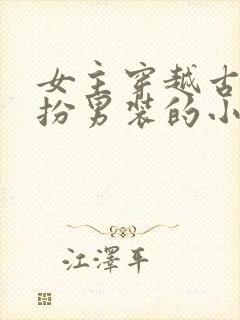 女主穿越古
扮男装的小
江澤平